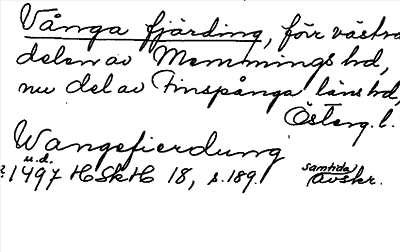 Vånga fjärding, förr västra
delen av Memmings hd,
nu del av Finspånga läns hd,
Österg. l.
Wangefierdung
u.d.
? 1497 HSkH 18, s. 189. samtida avskr.